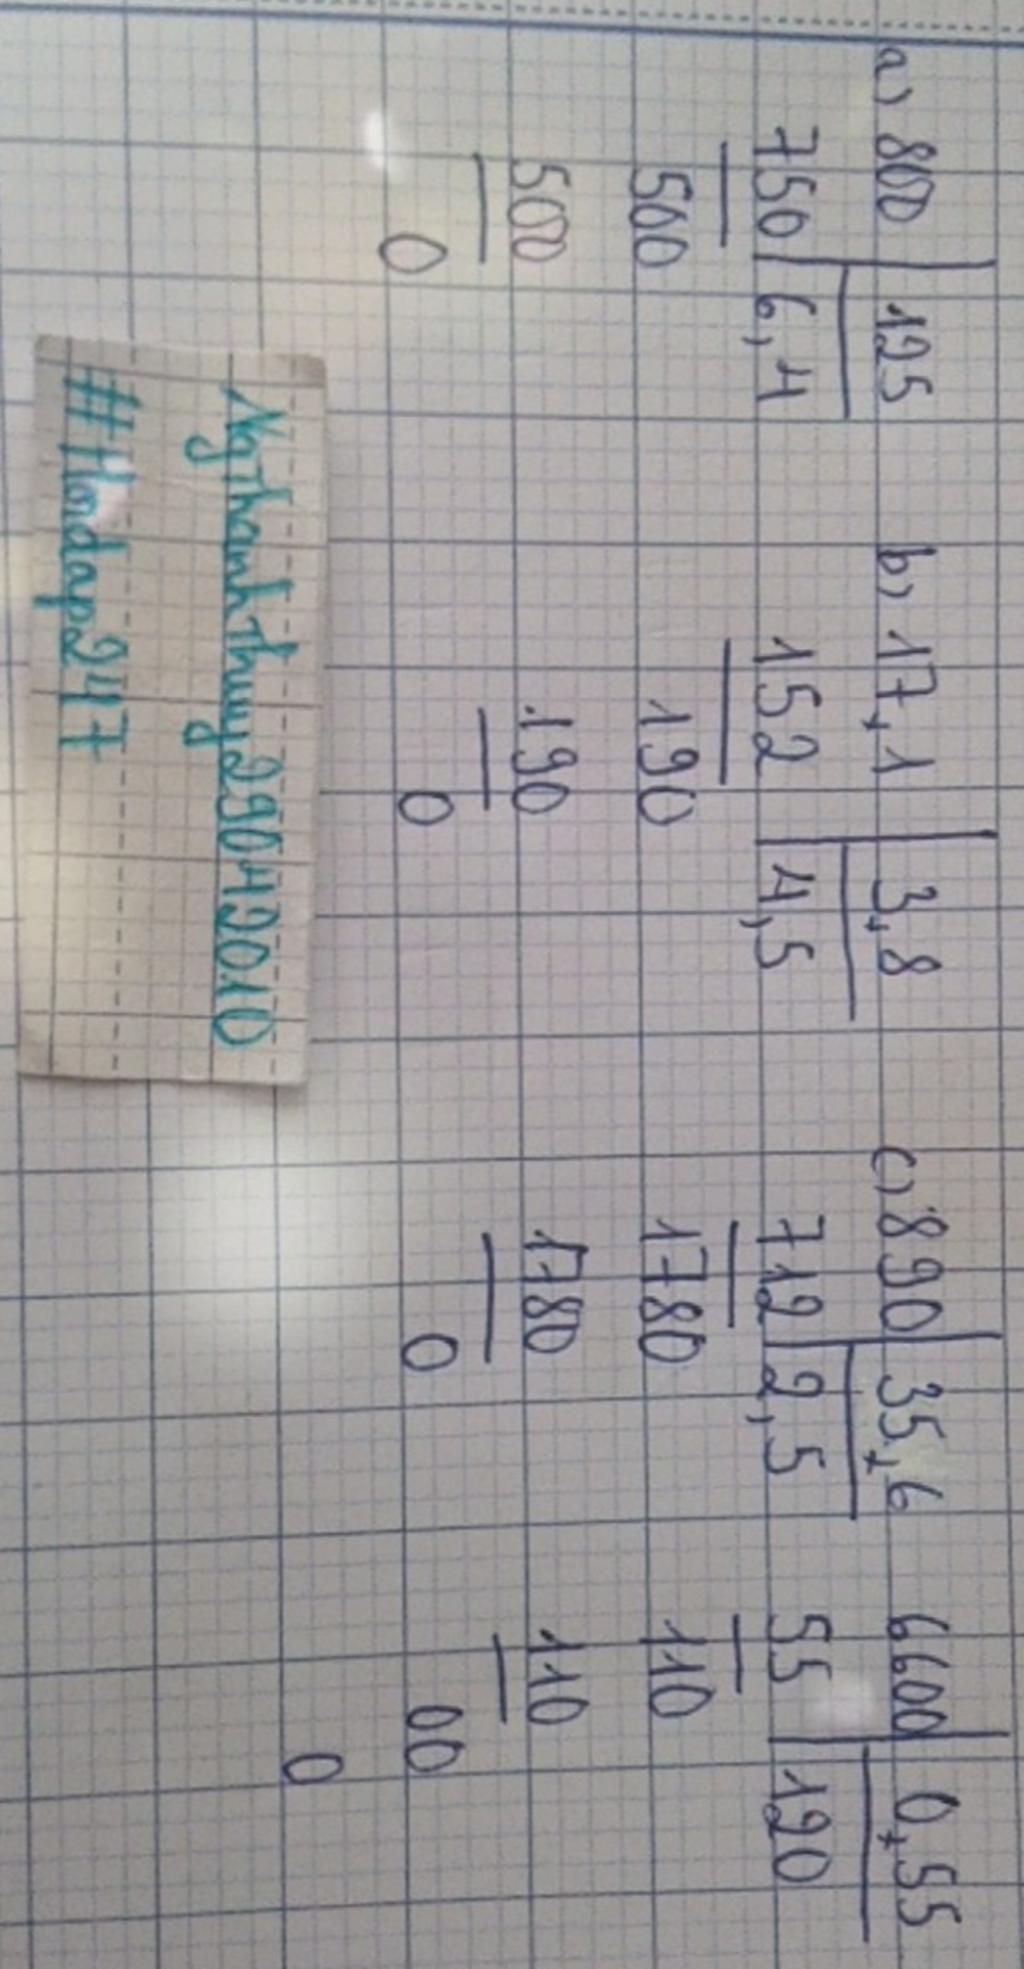 a) 800 125 b) 17,1 3,8 c) 890 35,6 6600 0,55
750 6,4 152 4,5 712 2,5 55 120
500 190 1780 110
500 190 1780 110
0 0 0 00
0
Ngthanhthuy29042010
#Hoidap247